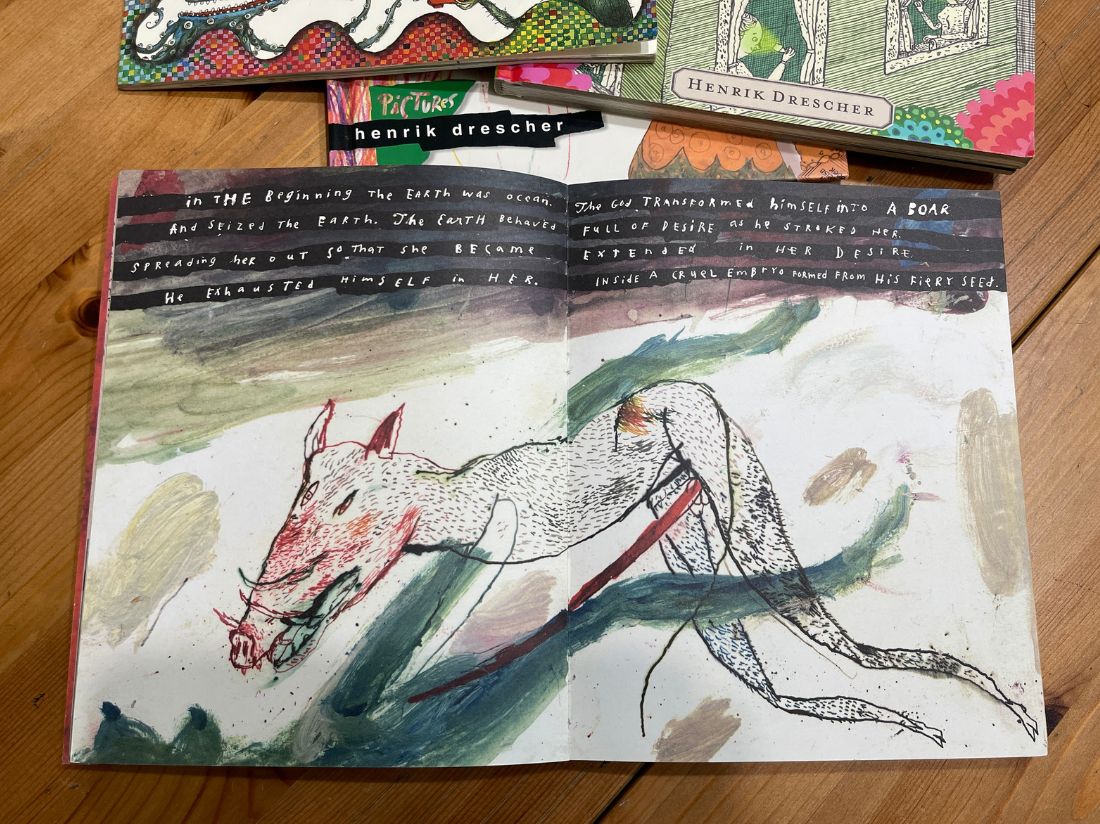 PiCTURES
henrik drescher
HENRIK DRESCHER
in THE Beginning THE EARTH was ocean. The GOD TRANSFORMED himSELF inTO A BOAR
And SEIZED THE EARTH. The EarTH BEHAVED FULL OF DESIRE as he STROKED HER.
SPREADING her OUT SO THAT SHE BECAME EXTENDED in HER DESIRE
He EXHAUSTED HIMSELF in HER. INSIDE A CRUEL EMBRYO FORMED FROM HiS FiERY SEED.